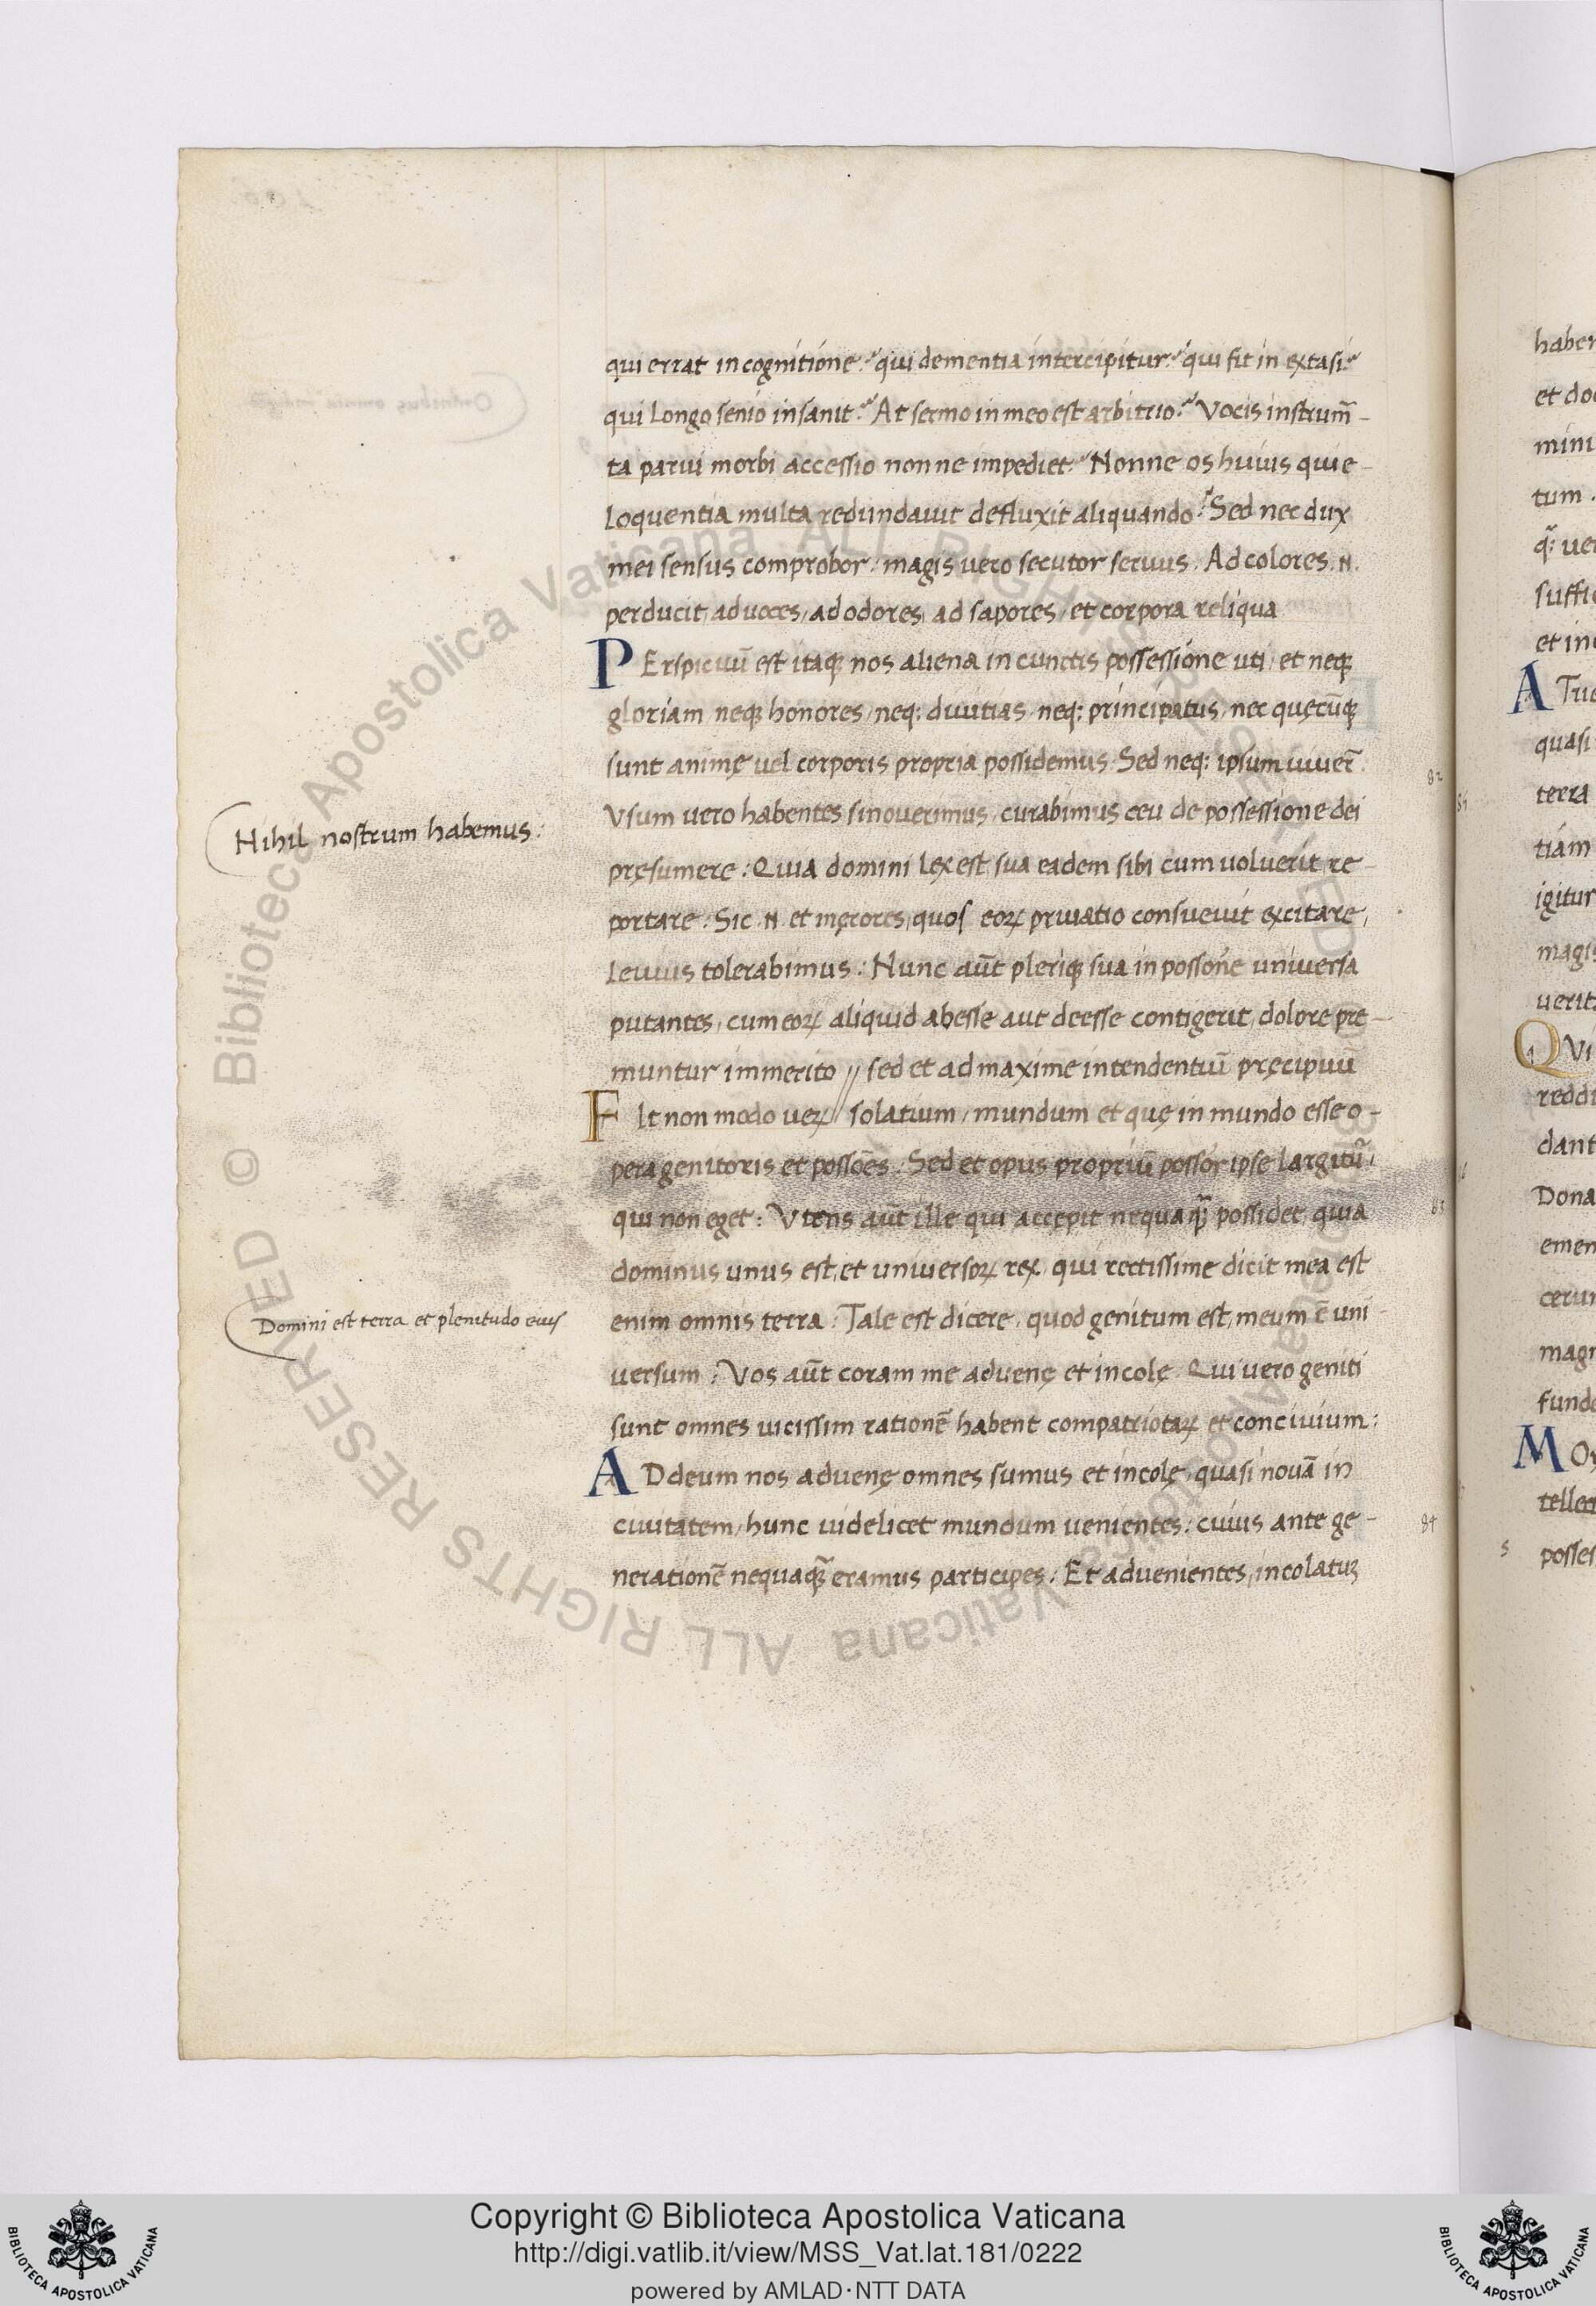 qui errat in cognitione? qui dementia intercipitur? qui fit in extasi?
qui longo senio insanit? At sermo in meo est arbitrio? Vocis instrum̃-
ta parui morbi accessio nonne impediet? Nonne os huius qui e-
loquentia multa redundauit defluxit aliquando? Sed nec dux
mei sensus comprobor, magis uero secutor seruus. Ad colores .N.
perducit, ad uoces, ad odores, ad sapores, et corpora reliqua
PErspicuũ est itaqꝫ nos aliena in cunctis possessione uti, et neqꝫ
gloriam, neqꝫ honores, neq; diuitias, neq; principatus, nec quęcũqꝫ
sunt animę uel corporis propria possidemus. Sed neq; ipsum uiuer̃.
Vsum uero habentes si nouerimus, curabimus ceu de possessione dei
Nihil nostrum habemus:
pręsumere: Quia domini lex est, sua eadem sibi cum uoluerit re-
portare. Sic .N. et męrores, quos eoꝝ priuatio consueuit excitare,
leuius tolerabimus: Nunc aũt pleriqꝫ sua in possonẽ uniuersa
putantes, cum eoꝝ aliquid abesse aut deesse contigerit, dolore pre-
muntur immerito // sed et ad maxime intendentiũ pręcipuũ
FIt non modo ueꝝ // solatium, mundum et quę in mundo esse o-
pera genitoris et possoẽs. Sed et opus propriũ possor̃ ipse largitũ,
qui non eget: Vtens aũt ille qui accępit nequaqꝫ̃ possidet, quia
dominus unus est, et uniuersoꝝ rex, qui rectissime dicit mea est
enim omnis terra. Tale est dicere, quod genitum est, meum ẽ uni-
Domini est terra et plenitudo eius
uersum: Vos aũt coram me aduenę et incolę. Qui uero geniti
sunt omnes uicissim rationẽ habent compatriotaꝝ et conciuium:
AD deum nos aduenę omnes sumus et incolę, quasi nouã in
ciuitatem, hunc uidelicet mundum uenientes: cuius ante ge-
nerationẽ nequaqꝫ̃ eramus participes: Et aduenientes, incolatuꝫ
82
83
84
haber
et do
mini
tum.
suffi
et in
A Tu
quasi
terra
tiam
igitur
magis
uerit
QVi
reddi
dant
Dona
emen
cerun
magn
fund
MOy
telle
posses
Copyright © Biblioteca Apostolica Vaticana
http://digi.vatlib.it/view/MSS_Vat.lat.181/0222
powered by AMLAD·NTT DATA
BIBLIOTECA APOSTOLICA VATICANA
BIBLIOTECA APOSTOLICA VATICANA
© Biblioteca Apostolica Vaticana ALL RIGHTS RESERVED © Biblioteca Apostolica Vaticana ALL RIGHTS RESERVED